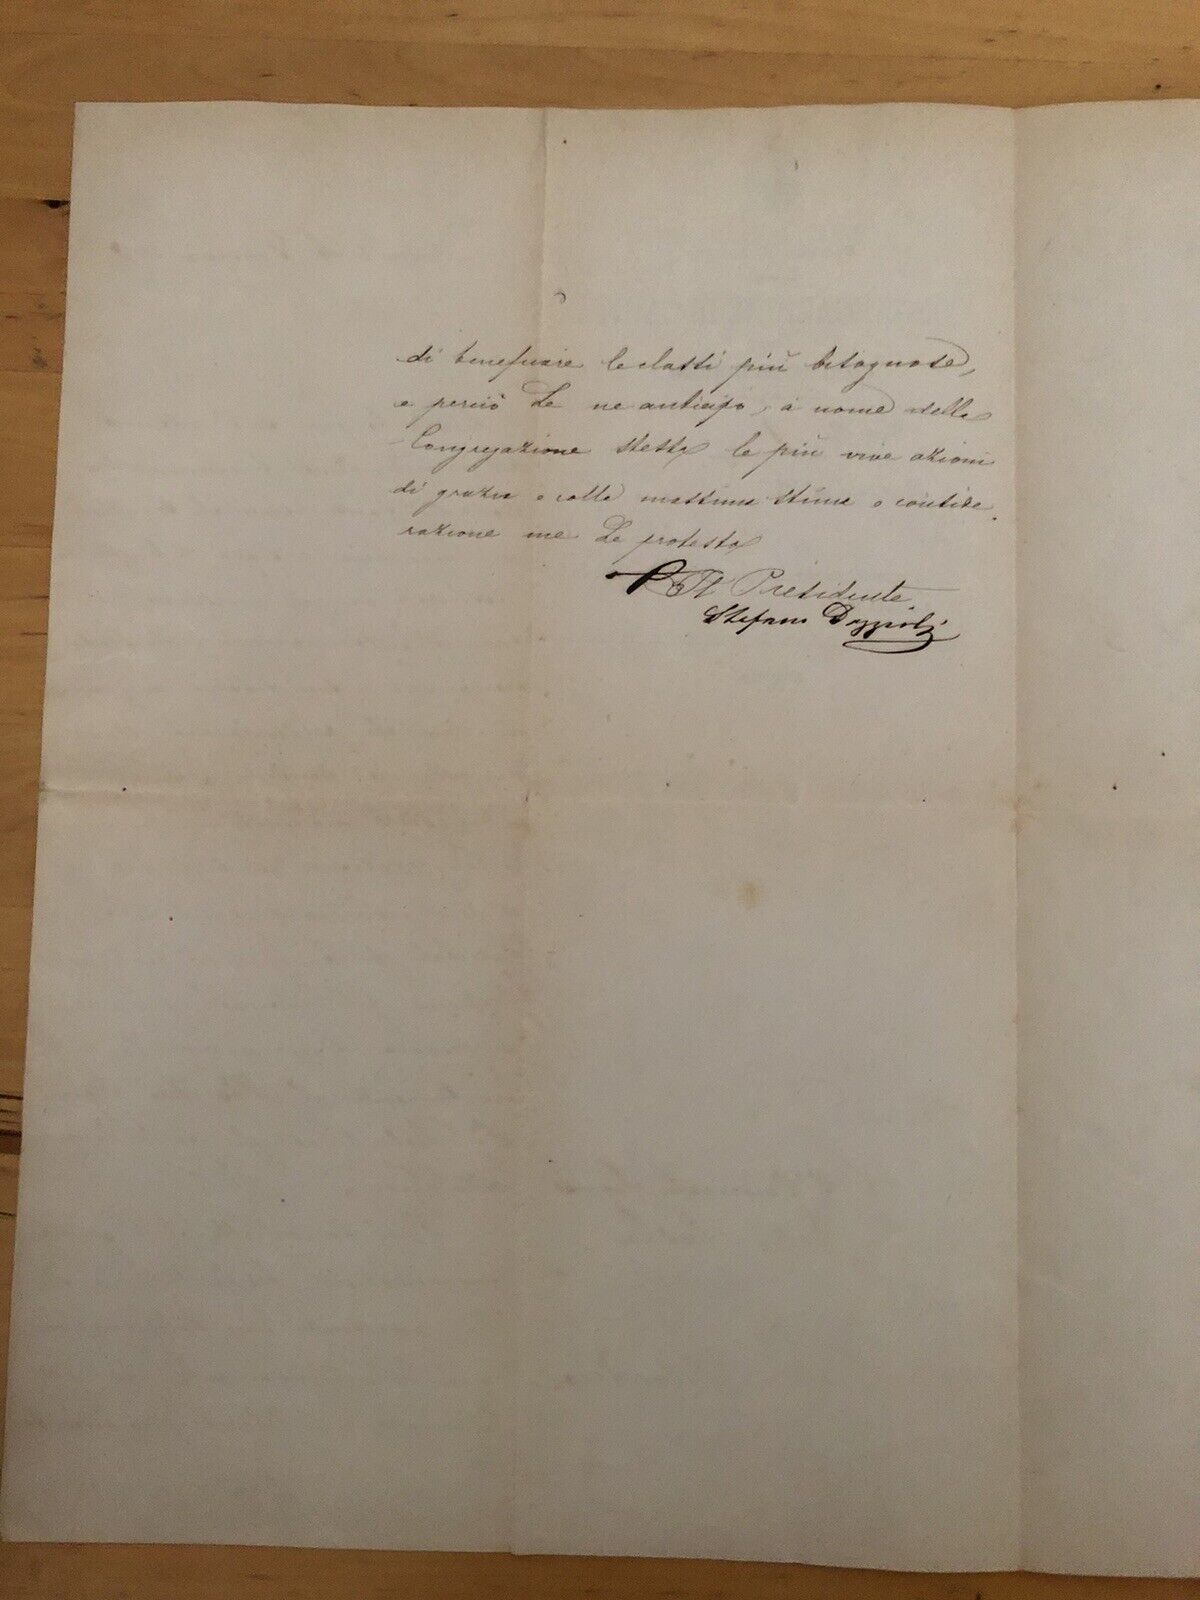 di beneficare le classi più bisognose,
e perciò Le ne anticipo, a nome della
Congregazione stessa le più vive azioni
di grazia e colla massima stima e conside
razione me Le protesto
Il Presidente
Stefano